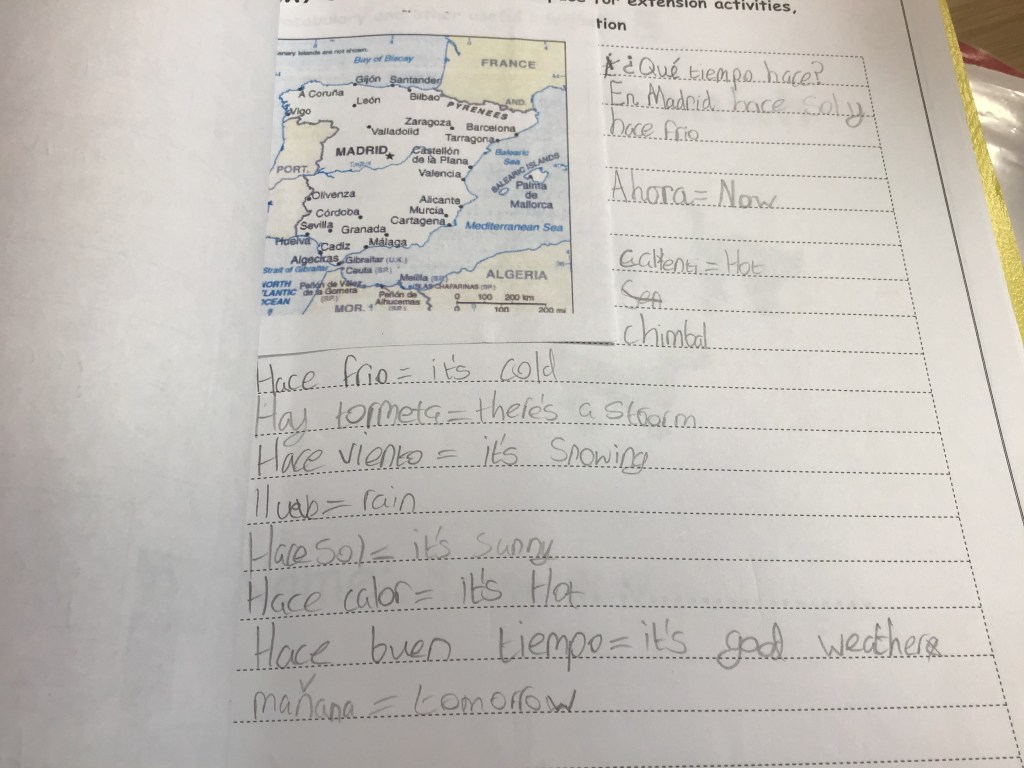 for extension activities,
tion
nary Islands are not shown.
Bay of Biscay
FRANCE
Gijón Santander
A Coruña
León
Bilbao
PYRENEES
AND.
Vigo
Zaragoza
Barcelona
Valladolid
Tarragona
MADRID
Castellón
de la Plana
Balearic
Sea
BALEARIC ISLANDS
PORT.
Valencia
Palma
de
Mallorca
Olivenza
Alicante
Córdoba
Murcia
Sevilla
Granada
Cartagena
Mediterranean Sea
Huelva
Cadiz
Málaga
Algeciras
Gibraltar (U.K.)
Strait of Gibraltar
Ceuta (SP.)
ALGERIA
NORTH
ATLANTIC
OCEAN
Peñón de Vélez
de la Gomera
(SP.)
Melilla (SP.)
ISLAS CHAFARINAS (SP.)
MOR.
Peñón de
Alhucemas
(SP.)
0 100 200 km
0 100 200 mi
¿Qué tiempo hace?
En Madrid hace sol y
hace frio
Ahora = Now
= Hot
Sea
chimbal
Hace frio = it's cold
Hay tormeta = there's a stoorm
Hace viento = it's Snowing
llueb = rain
Hace Sol = it's sunny
Hace calor = it's Hot
Hace buen tiempo = it's good weather
mañana = tomorrow